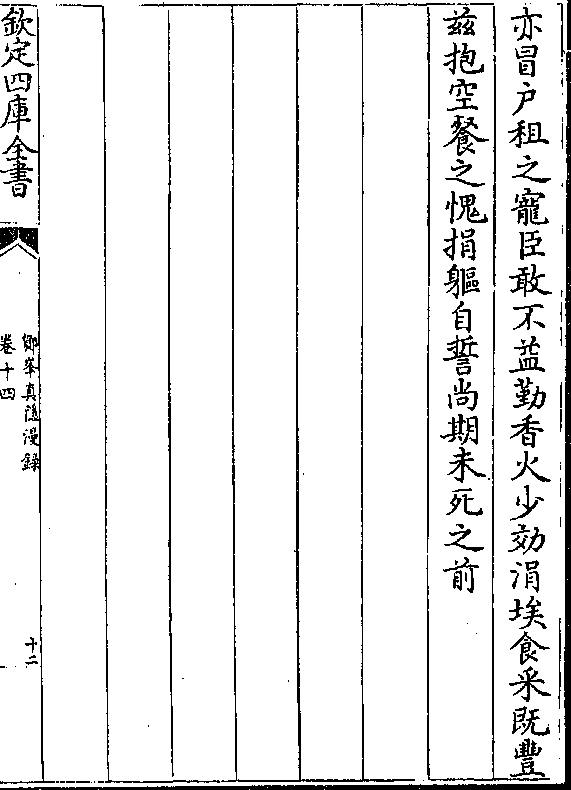 亦冒户租之寵臣敢不益勤香火少効涓埃食采既豐
兹抱空餐之愧捐軀自誓尚期未死之前
欽定四庫全書
鄮峯真隱漫録
卷十四
十二